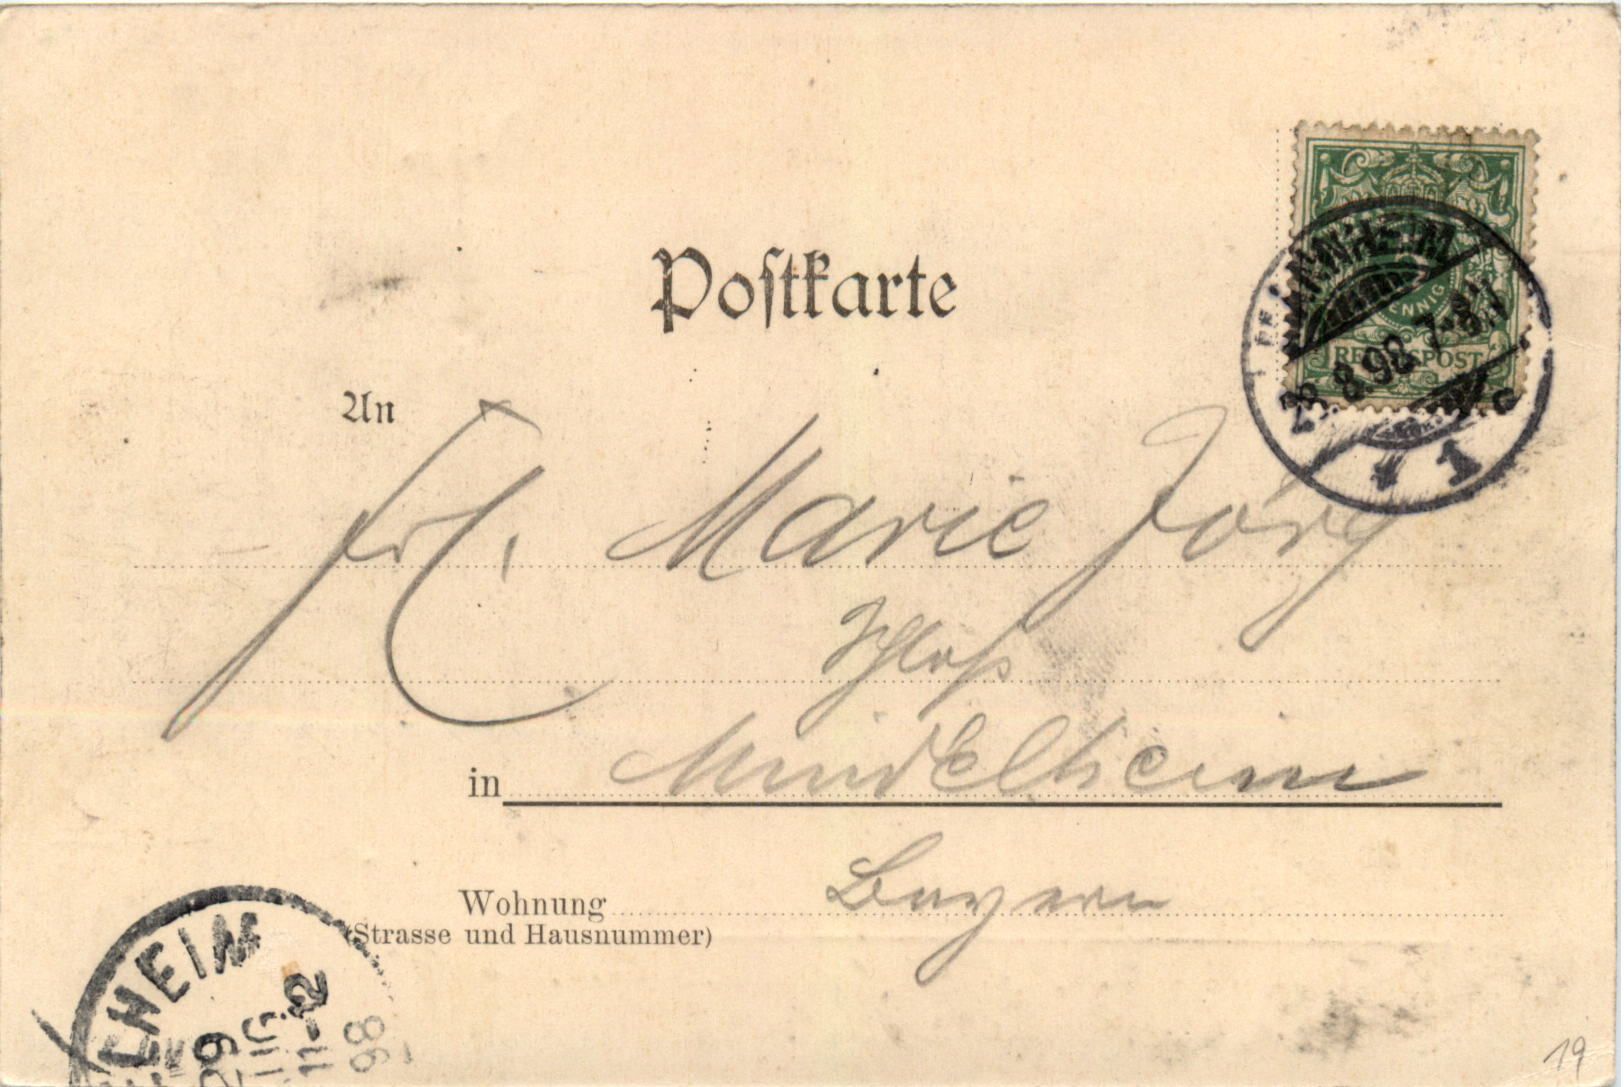 Postkarte
PFENNIG
REICHSPOST
MANNHEIM
28. 8. 98. 7-8N
1 c
An
Frl. Marie Jörg
Schloß
in Mindelheim
Bayern
Wohnung
(Strasse und Hausnummer)
LHEIM
29
11-12
98
19